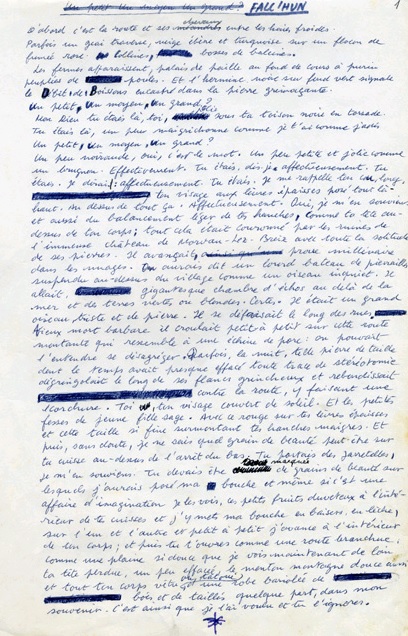 Un petit Un moyen Un grand? FALL'HUN 1
D'abord c'est la route et ses entre les haies froides.
Parfois un geai traverse, neige claire et turquoise sur un flocon de
givre rosé. collines, bosses de baleines.
Les fermes apparaissent, palais de paille au fond de cours à purin
peuplées de poules. Et l'hermine noire sur fond vert signale
le Débit de Boissons encastré dans la pierre
Un petit, un moyen, un grand?
Mon Dieu tu étais là, toi, sous ta toison noire en torsade.
Tu étais là, un peu maigrichonne comme je t'ai connue jadis
Un petit, un moyen, un grand?
Un peu noiraude, oui, c'est le mot. Un peu petite et jolie comme
un bougnon. Affectueusement. Tu étais, dis-je, affectueusement. Tu
étais. Je disais: affectueusement. Tu étais. Je me rappelle ton
ton visage aux lèvres épaisses pour tout là-
haut. Au-dessus de tout ça. Affectueusement. Oui, je m'en souviens
et aussi du balancement léger de tes hanches, comme ta tête au-
dessus de ton corps; tout cela était couronné par les ruines de
l'immense château de Morvan-Lez-Breiz avec toute la solitude
de ses pierres. Il avançait, proue millénaire
dans les nuages. Un lourd bateau de pierailles
suspendu au-dessus du village comme un oiseau inquiet. Il
allait, gigantesque chambre d'échos au delà de la
mer et de terres vertes ou blondes. Certes. Il était un grand
oiseau triste et de pierre. Il se défaisait le long des murs.
Vieux mort barbare il croulait petit à petit sur cette route
montante qui ressemble à une échine de porc: on pouvait
l'entendre se désagréger. Parfois, la nuit, telle pierre de taille
dont le temps avait presque effacé toute trace de stéréotomie
dégringolait le long de ses flancs grincheux et rebondissait
contre la route, y faisant une
écorchure. Toi ton visage couvert de soleil. Et tes petites
fesses de jeune fille sage. Avec ce rouge sur tes lèvres épaisses
et cette taille si fine surmontant tes hanches maigres. Et
puis, sans doute, je ne sais quel grain de beauté peut-être sur
ta cuisse au-dessus de l'arrêt du bas. Tu portais des jarretelles,
je m'en souviens. Tu devais être marquée de grains de beauté sur
lesquels j'aurais posé ma bouche et même si c'est une
affaire d'imagination je les vois, ces petits fruits duveteux à l'inté-
rieur de ta cuisse et j'y mets ma bouche en baisers. en lèche,
sur l'un et l'autre et petit à petit j'avance à l'intérieur
de ton corps; et puis, tu t'ouvres comme une route blanche.
comme une plaine si douce que je vois maintenant de loin
ta tête perdue, un peu effacée, le menton montagne douce aussi
et tout ton corps vêtu une robe bariolée de
bois et de taillis quelque part, dans mon
souvenir. C'est ainsi que je t'ai voulue et tu l'ignores.